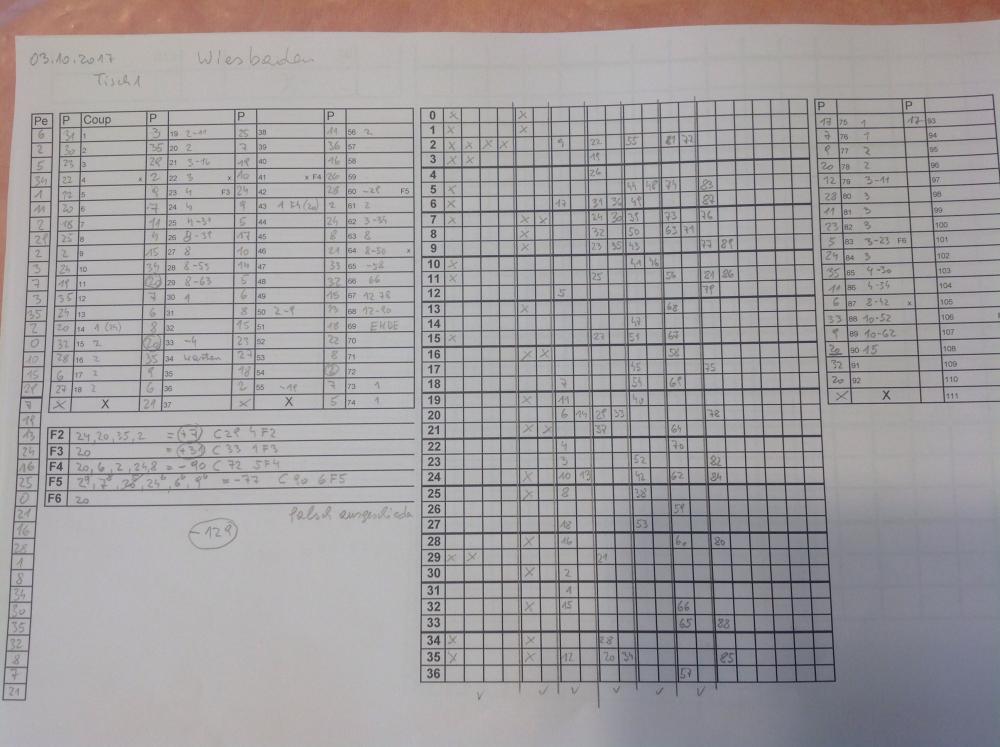 03.10.2017 Wiesbaden
Tisch 1
Pe P Coup P P P
6 31 1 3 19 2-11 25 38 11 56 2
2 30 2 35 20 2 7 39 36 57
5 23 3 29 21 3-16 19 40 16 58
34 22 4 x 2 22 3 x 10 41 x F4 26 59
1 12 5 9 23 4 F3 24 42 28 60 -29 F5
11 20 6 7 24 4 9 43 1 F4 (20) 2 61 2
2 18 7 11 25 4-31 5 44 24 62 3-34
29 25 8 4 26 8-39 17 45 8 63 8
2 2 9 15 27 8 10 46 21 64 8-50 x
3 24 10 34 28 8-55 14 47 33 65 -58
7 19 11 20 29 8-63 5 48 32 66 66
3 35 12 7 30 1 6 49 15 67 12 78
35 24 13 6 31 8 50 2-9 13 68 12-90
2 20 14 1 (24) 8 32 15 51 18 69 ENDE
0 32 15 2 20 33 -4 23 52 22 70
10 28 16 2 35 34 warten 27 53 8 71
15 6 17 2 9 35 18 54 2 72
29 27 18 2 6 36 2 55 -19 7 73 1
7 X X 21 37 X X 5 74 1
19
13
24
16
25
0
21
16
28
1
8
34
30
35
32
8
7
21
F2 24,20,35,2 = +7 C 29 4 F2
F3 20 = +31 C 33 1 F3
F4 20,6,2,24,8 = -90 C 72 5 F4
F5 = -77 C 90 6 F5
F6 20
falsch
-129
0 X X
1 X X
2 X X X X 9 22 55 72
3 X X 19
4 26
5 X 44 48 74 83
6 X 17 31 36 49 87
7 X X X 24 30 39 73 76
8 X 32 50 63 71
9 X 23 35 43 77 89
10 X 41 46
11 X 25 56 81 86
12 5 79
13 X 68
14 47
15 X 27 51 67
16 X X 58
17 45 75
18 7 54 69
19 X 11 40
20 6 14 29 33 78
21 X X 37 64
22 4 70
23 3 52 82
24 X 10 13 42 62 84
25 X 8 38
26 59
27 18 53
28 X 16 60 80
29 X X 21
30 X 2
31 1
32 X 15 66
33 65 88
34 X X 28
35 X X 12 20 34 85
36 57
P P
17 75 1 17 93
7 76 1 94
9 77 2 95
20 78 2 96
12 79 3-11 97
28 80 3 98
11 81 3 99
23 82 3 100
5 83 3-23 F6 101
24 84 3 102
35 85 4-30 103
11 86 4-34 104
6 87 8-42 x 105
33 88 10-52 106
9 89 10-62 107
20 90 15 108
32 91 109
20 92 110
X X 111